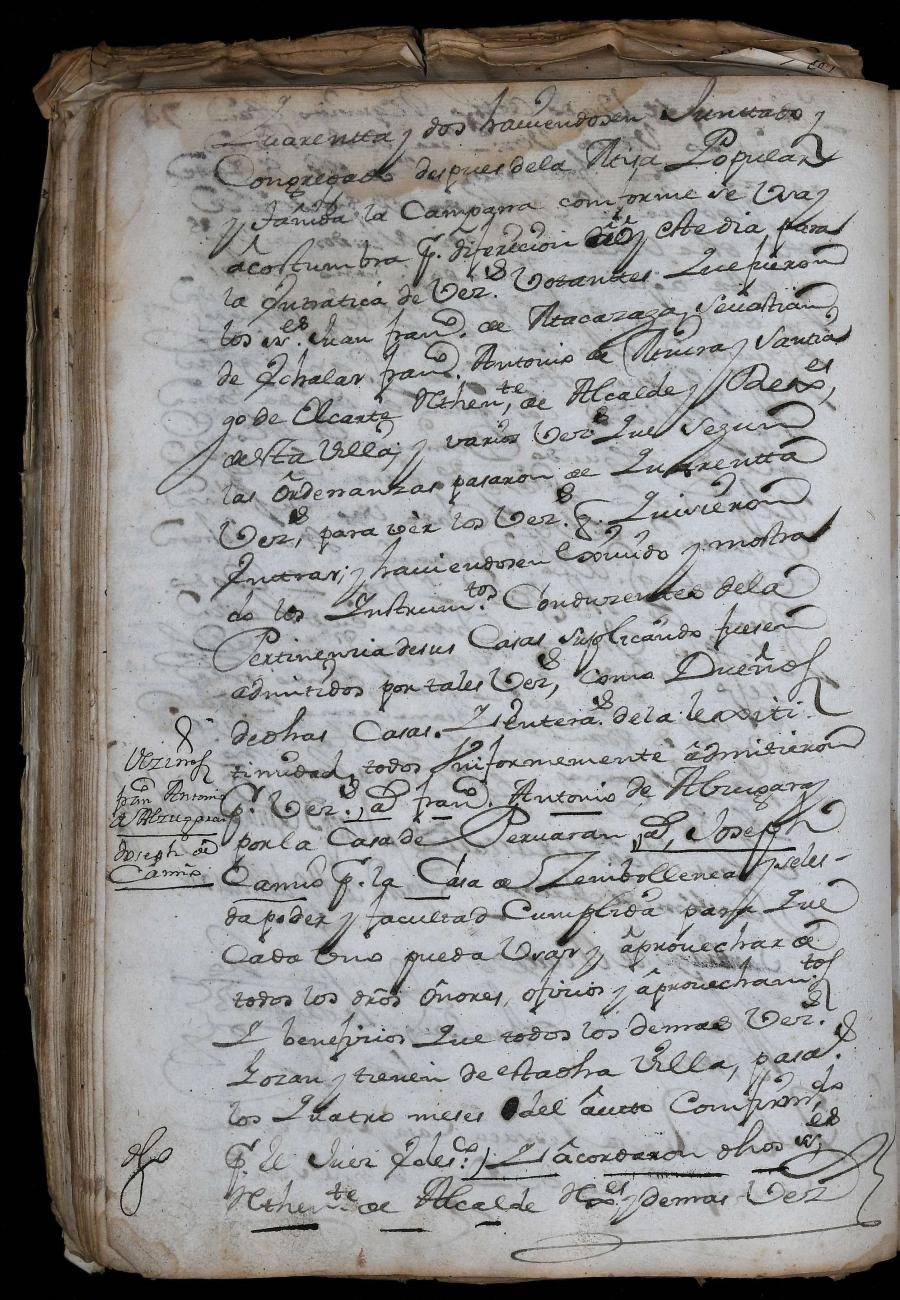 Quarentta y dos haviendosen Junttado y
Congregado despues dela Misa Popular
y tañida la Campana comforme se Usa y
acostumbra pr. diferecion deeste dia para
la Intratica de Vezs. Votantes. Que fueron
los sres. Juan franco. de Atacaraza, Sevastian
de Ychalar franco. Antonio de Rivera y Santia
go de Elcarte Thente. de Alcalde y Rexes,
desta Villa; y varios Vezs. Que segun
las Ordenanzas pasaron de Quarentta
Vezs, para ver los Vezs. q. Quivieron
Inttrar; y haviendosen Exivido y mostra
do los Instrumtos. Conduzentes dela
Pertinencia desus Casas suplicando fuesen
admitidos por tales Vezs, como Dueños
dedhas Casas. Y enterados dela lexiti-
timidad, todos Uniformemente admitieron
pr. Vezs., a franco. Antonio de Alzugaray
por la Casa de Peruaran, a Joseph
Camio pr. la Casa de Zembollenea y seles-
da poder y facultad Cumplida para Que
Cada Uno pueda Usar y aprovechar de
todos los dros onores, ofizios y aprovechamtos
Y benefizios Que todos los demas Vezs.
Gozan y tienen de esta dha Villa, pasads.
los Quatro meses del autto Comfirmdo
pr. el Juez Ydes.) Y acordaron dhos sres
Thente de Alcalde Rexes y demas Vezs
Vezinos
fran Antonio
de Alzugaray
Joseph de
Camio
dho